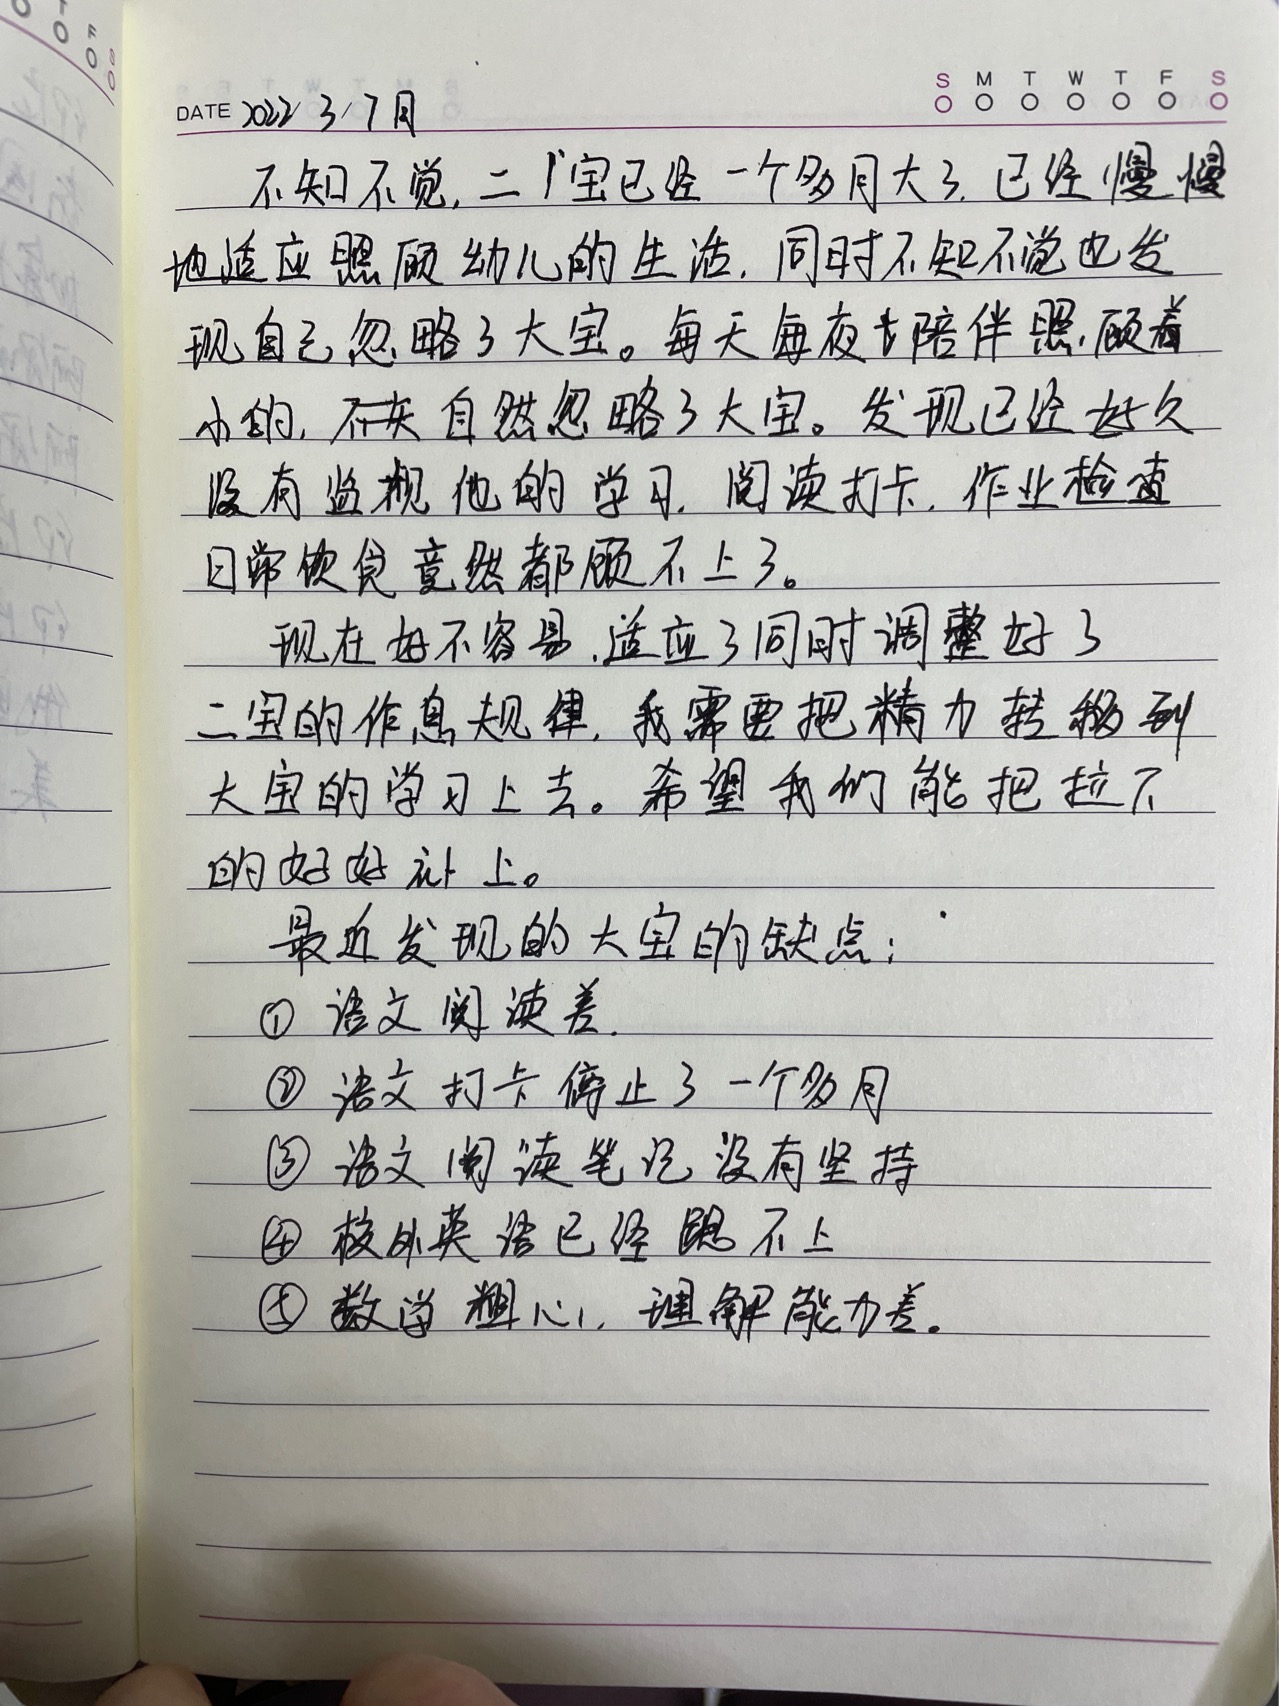 S M T W T F S
DATE 2022 3/7月
不知不觉,二宝已经一个多月大了,已经慢慢
地适应照顾幼儿的生活,同时不知不觉也发
现自己忽略了大宝。每天每夜陪伴照顾着
小的,自然忽略了大宝。发现已经好久
没有监视他的学习,阅读打卡,作业检查
日常饮食竟然都顾不上了。
现在好不容易,适应了同时调整好了
二宝的作息规律,我需要把精力转移到
大宝的学习上去。希望我们能把拉下
的好好补上。
最近发现的大宝的缺点:
①语文阅读差.
②语文打卡停止了一个多月
③语文阅读笔记没有坚持
④校外英语已经跟不上
⑤数学粗心,理解能力差。